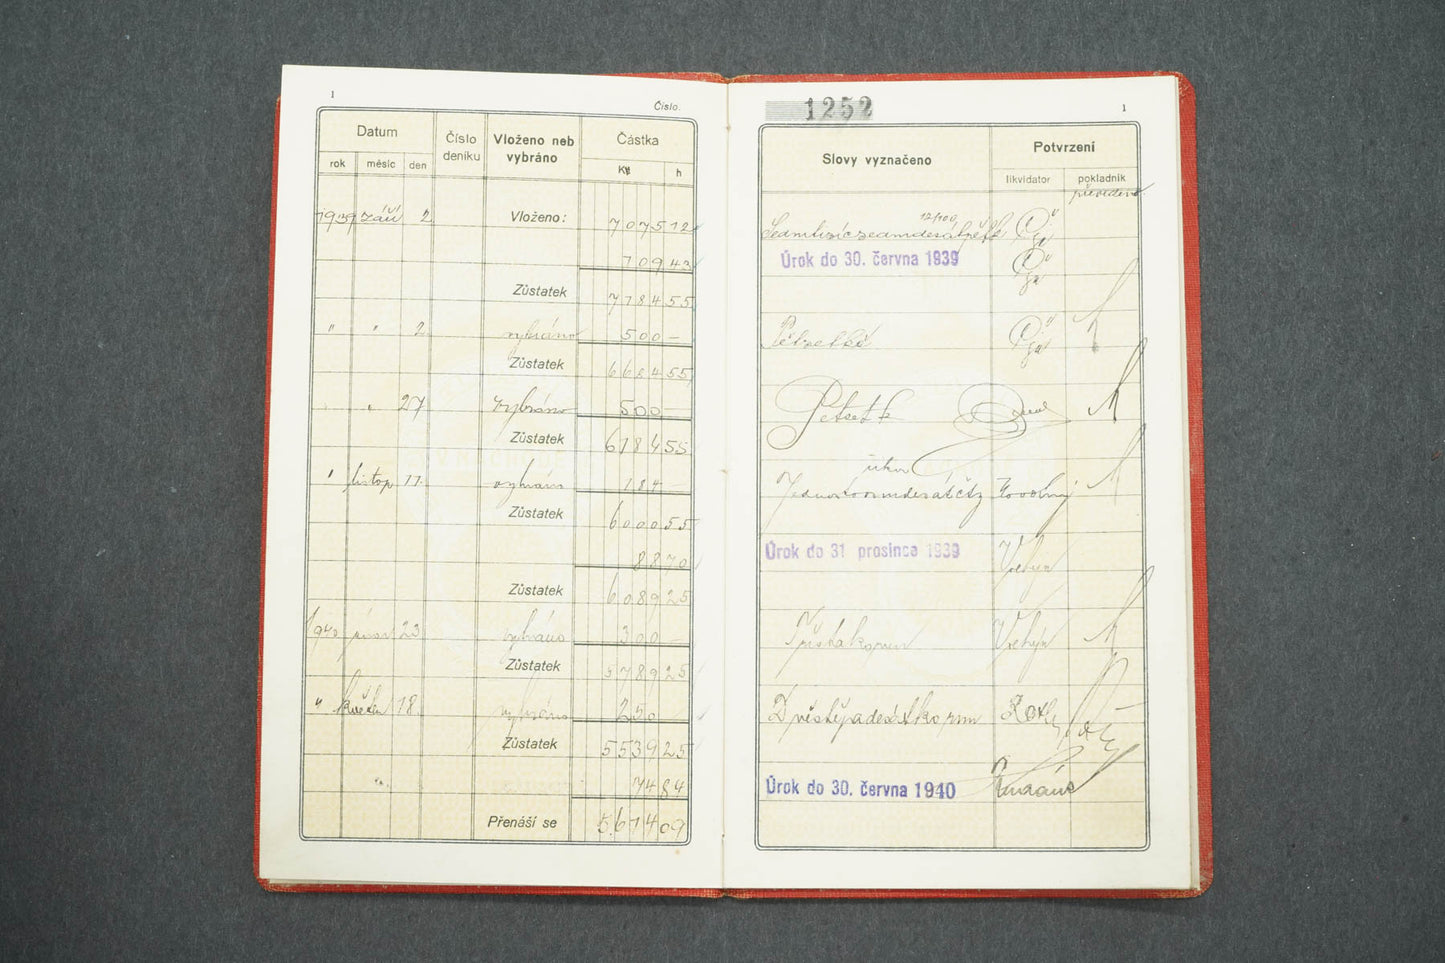 1
Číslo.
Datum
Číslo deníku
Vloženo neb vybráno
Částka
rok
měsíc
den
h
1939 září 2
Vloženo:
7075 12
109 43
Zůstatek
7184 55
" " 2
vybráno
500 –
Zůstatek
6684 55
" " 27
vybráno
500
Zůstatek
6184 55
" listop 11.
vybráno
184 –
Zůstatek
6000 55
88 70
Zůstatek
6089 25
1940 únor 23
vybráno
300 –
Zůstatek
5789 25
" květen 18.
vybráno
250
Zůstatek
5539 25
74 84
Přenáší se
5.614 09
V NÁCHODĚ
1252
1
Slovy vyznačeno
Potvrzení
likvidátor
pokladník
převedeno
12/100
Sedmtisícsedmdesátpět
Úrok do 30. června 1939
Pětset kč
Pětset k
Jednostoosmdesátčtyř
Úrok do 31 prosince 1939
Třista korun
Dvěstěpadesátkorun
Úrok do 30. června 1940